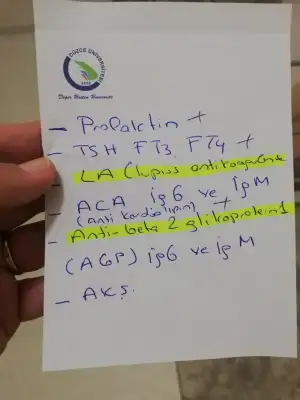 DÜZCE ÜNİVERSİTESİ
Düzce Üniversitesi
- Prolaktin +
- TSH FT3 FT4 +
- LA (lupus antikoagülan
- ACA Ig6 ve IgM
(anti kardiolipin) +
- Anti-beta 2 glikoprotein1
(AGP) ig6 ve ig M
- AKŞ.